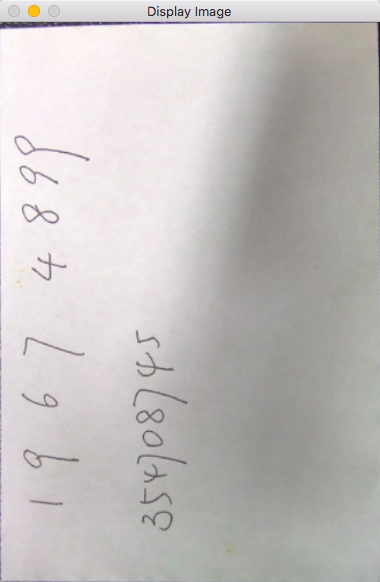 Display Image
1 9 6 7 4 8 9 9
354708745